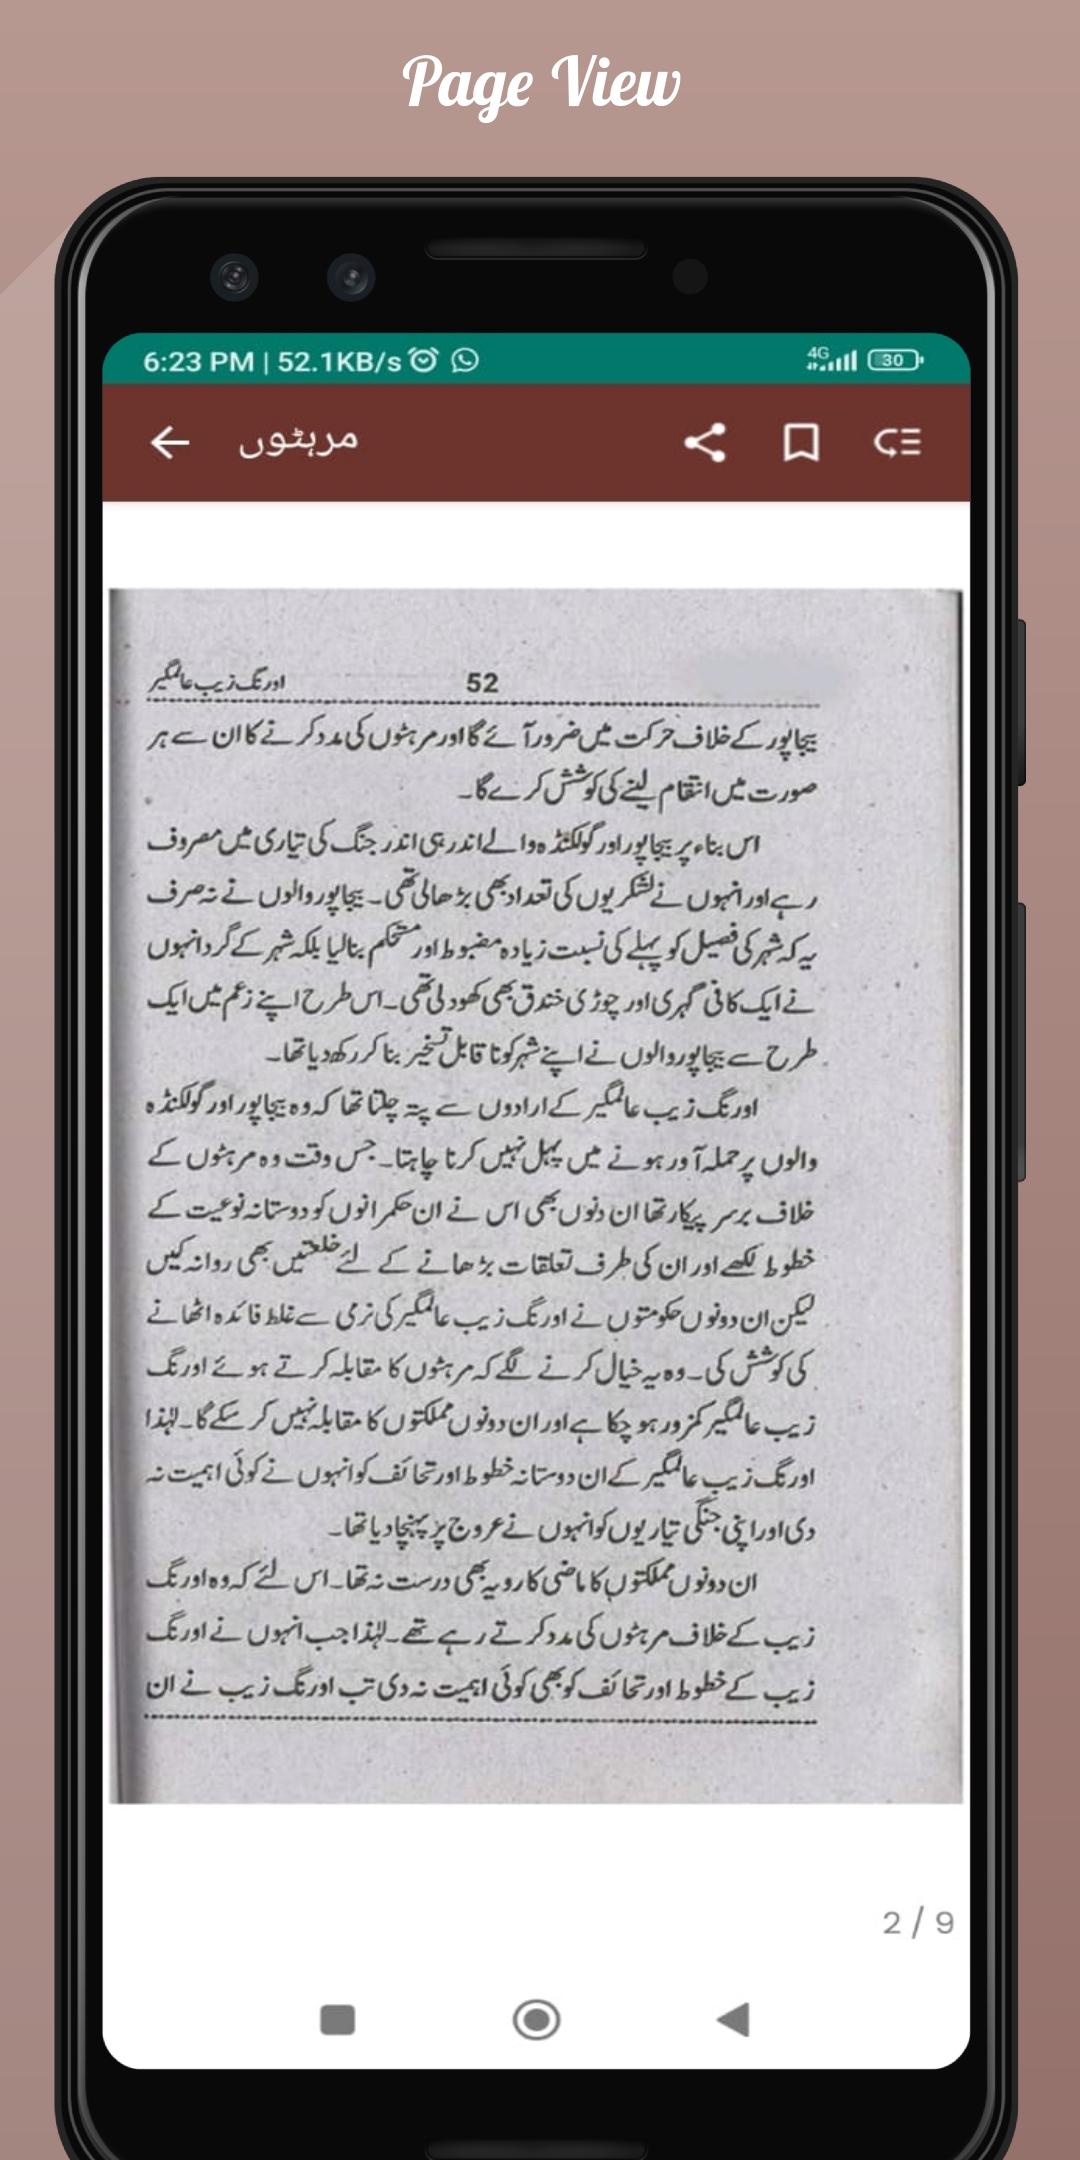 Page View
6:23 PM | 52.1KB/s
4G 30
مرہٹوں
اورنگ زیب عالمگیر 52
بیجاپور کے خلاف حرکت میں ضرور آئے گا اور مرہٹوں کی مدد کرنے کا ان سے ہر
صورت میں انتقام لینے کی کوشش کرے گا۔
اس بناء پر بیجاپور اور گولکنڈہ والے اندر ہی اندر جنگ کی تیاری میں مصروف
رہے اور انہوں نے لشکریوں کی تعداد بھی بڑھالی تھی۔ بیجاپور والوں نے نہ صرف
یہ کہ شہر کی فصیل کو پہلے کی نسبت زیادہ مضبوط اور مستحکم بنالیا بلکہ شہر کے گرد انہوں
نے ایک کافی گہری اور چوڑی خندق بھی کھود لی تھی۔ اس طرح اپنے زعم میں ایک
طرح سے بیجاپور والوں نے اپنے شہر کو نا قابل تسخیر بنا کر رکھ دیا تھا۔
اورنگ زیب عالمگیر کے ارادوں سے پتہ چلتا تھا کہ وہ بیجاپور اور گولکنڈہ
والوں پر حملہ آور ہونے میں پہل نہیں کرنا چاہتا۔ جس وقت وہ مرہٹوں کے
خلاف برسر پیکار تھا ان دنوں بھی اس نے ان حکمرانوں کو دوستانہ نوعیت کے
خطوط لکھے اور ان کی طرف تعلقات بڑھانے کے لئے خلعتیں بھی روانہ کیں
لیکن ان دونوں حکومتوں نے اورنگ زیب عالمگیر کی نرمی سے غلط فائدہ اٹھانے
کی کوشش کی۔ وہ یہ خیال کرنے لگے کہ مرہٹوں کا مقابلہ کرتے ہوئے اورنگ
زیب عالمگیر کمزور ہو چکا ہے اور ان دونوں مملکتوں کا مقابلہ نہیں کر سکے گا۔ لہٰذا
اورنگ زیب عالمگیر کے ان دوستانہ خطوط اور تحائف کو انہوں نے کوئی اہمیت نہ
دی اور اپنی جنگی تیاریوں کو انہوں نے عروج پر پہنچا دیا تھا۔
ان دونوں مملکتوں کا ماضی کا رویہ بھی درست نہ تھا۔ اس لئے کہ وہ اورنگ
زیب کے خلاف مرہٹوں کی مدد کرتے رہے تھے۔ لہٰذا جب انہوں نے اورنگ
زیب کے خطوط اور تحائف کو بھی کوئی اہمیت نہ دی تب اورنگ زیب نے ان
2 / 9